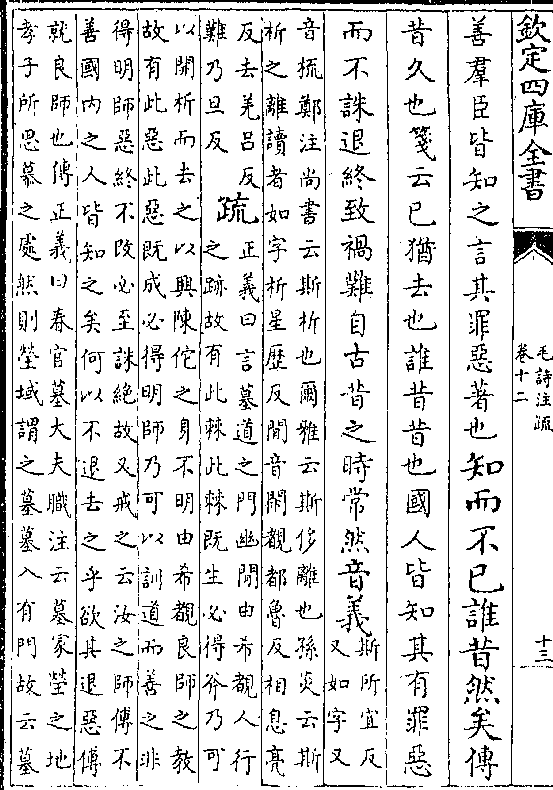 欽定四庫全書
毛詩注疏
卷十二
十三
善羣臣皆知之言其罪惡著也知而不已誰昔然矣傳
昔久也箋云已猶去也誰昔昔也國人皆知其有罪惡
而不誅退終致禍難自古昔之時常然音義
斯所宜反
又如字又
音梳鄭注尚書云斯析也爾雅云斯侈離也孫炎云斯
析之離讀者如字析星歷反閒音閑觀都魯反相息亮
反去羌呂反
難乃旦反
疏
正義曰言墓道之門幽閒由希覩人行
之跡故有此棘此棘既生必得斧乃可
以開析而去之以興陳佗之身不明由希觀良師之教
故有此惡此惡既成必得明師乃可以訓道而善之非
得明師惡終不改必至誅絕故又戒之云汝之師傅不
善國内之人皆知之矣何以不退去之乎欲其退惡傅
就良師也傳正義曰春官墓大夫職注云墓冡塋之地
孝子所思慕之處然則塋域謂之墓墓入有門故云墓